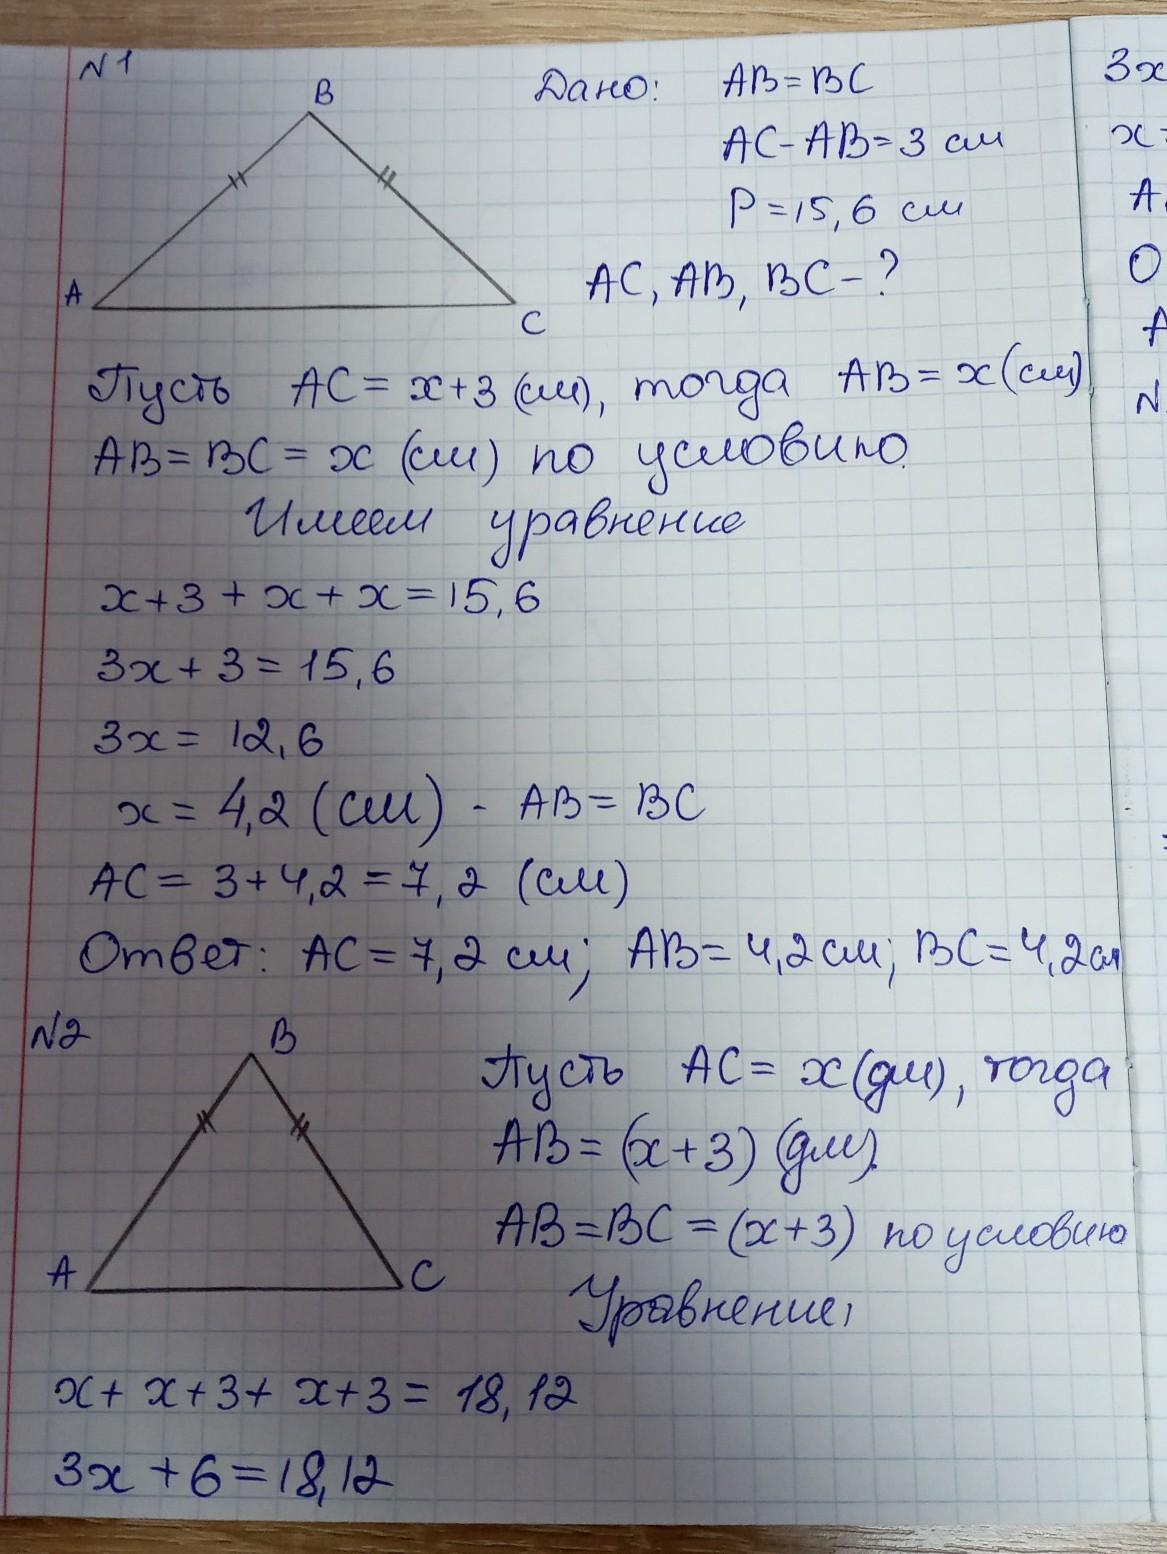 N1
B
A
C
Дано: AB=BC
AC-AB=3 см
P=15,6 см
AC, AB, BC-?
Пусть AC=x+3 (см), тогда AB=x(см)
AB=BC=x (см) по условию.
Имеем уравнение
x+3+x+x=15,6
3x+3=15,6
3x=12,6
x=4,2 (см) - AB=BC
AC=3+4,2=7,2 (см)
Ответ: AC=7,2 см; AB=4,2см; BC=4,2см
N2
B
A
C
Пусть AC=x(дм), тогда
AB=(x+3) (дм).
AB=BC=(x+3) по условию
Уравнение,
x+x+3+x+3=18,12
3x+6=18,12
3x
x=
A
O
A
N